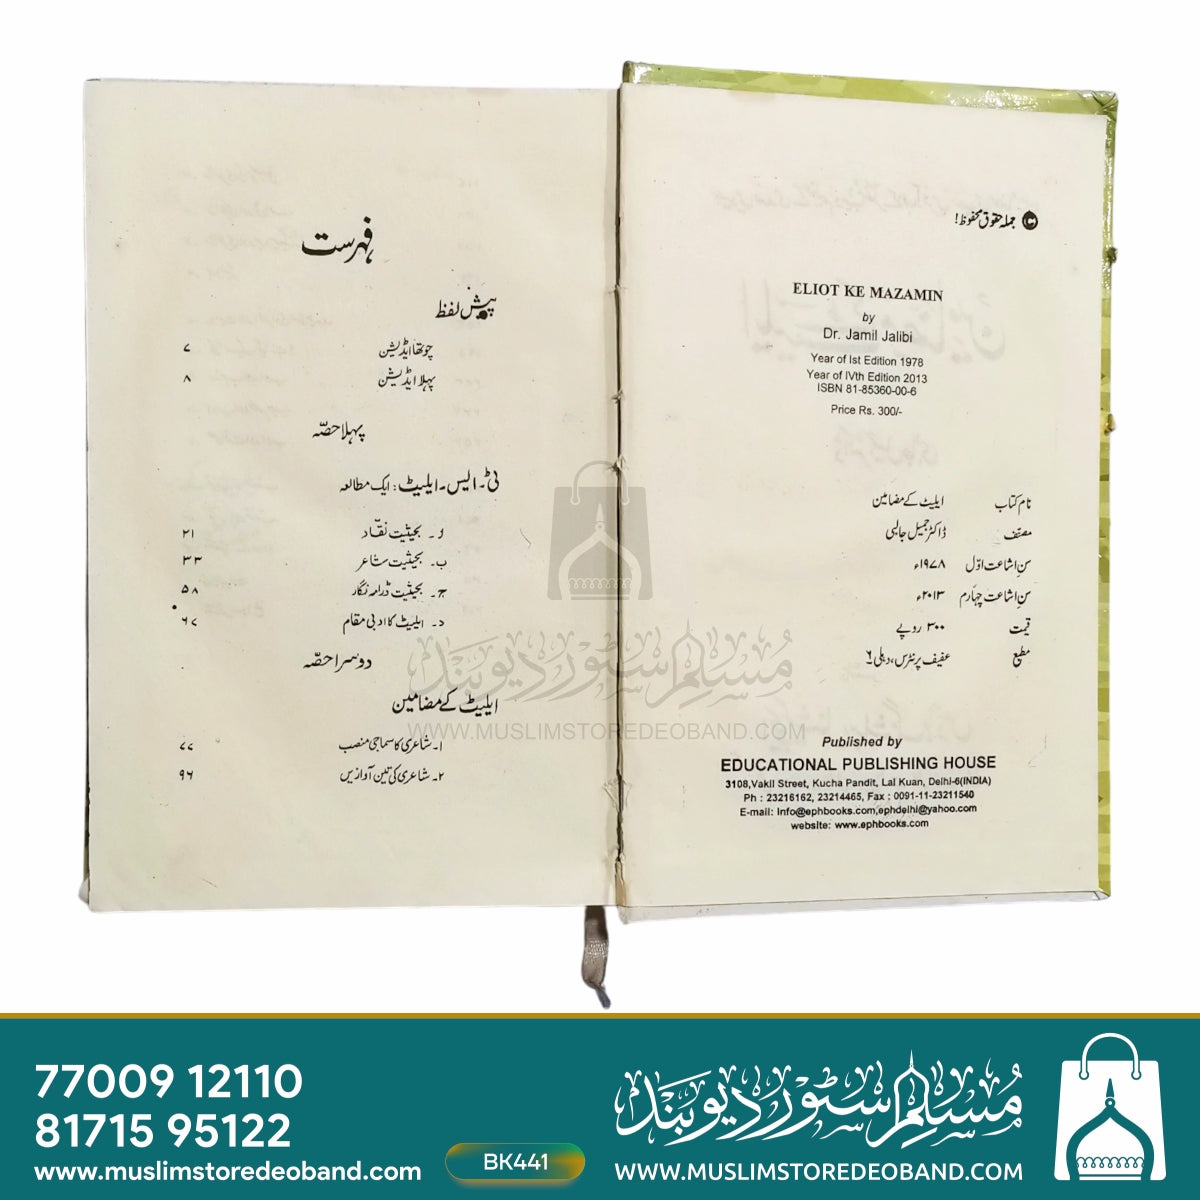 جملہ حقوق محفوظ!
ELIOT KE MAZAMIN
by
Dr. Jamil Jalibi
Year of Ist Edition 1978
Year of IVth Edition 2013
ISBN 81-85360-00-6
Price Rs. 300/-
نام کتاب ایلیٹ کے مضامین
مصنف ڈاکٹر جمیل جالبی
سنِ اشاعت اوّل ۱۹۷۸ء
سنِ اشاعت چہارم ۲۰۱۳ء
قیمت ۳۰۰ روپے
مطبع عفیف پرنٹرس، دہلی ۶
Published by
EDUCATIONAL PUBLISHING HOUSE
3108,Vakil Street, Kucha Pandit, Lal Kuan, Delhi-6(INDIA)
Ph : 23216162, 23214465, Fax : 0091-11-23211540
E-mail: info@ephbooks.com,ephdelhi@yahoo.com
website: www.ephbooks.com
فہرست
پیش لفظ
چوتھا ایڈیشن ۷
پہلا ایڈیشن ۸
پہلا حصّہ
ٹی۔ایس۔ایلیٹ: ایک مطالعہ
ا۔ بحیثیت نقّاد ۲۱
ب۔ بحیثیت شاعر ۳۳
ج۔ بحیثیت ڈرامہ نگار ۵۸
د۔ ایلیٹ کا ادبی مقام ۶۷
دوسرا حصّہ
ایلیٹ کے مضامین
۱۔ شاعری کا سماجی منصب ۷۷
۲۔ شاعری کی تین آوازیں ۹۶
مسلم سٹور دیوبند
WWW.MUSLIMSTOREDEOBAND.COM
77009 12110
81715 95122
www.muslimstoredeoband.com
BK441
مسلم سٹور دیوبند
WWW.MUSLIMSTOREDEOBAND.COM